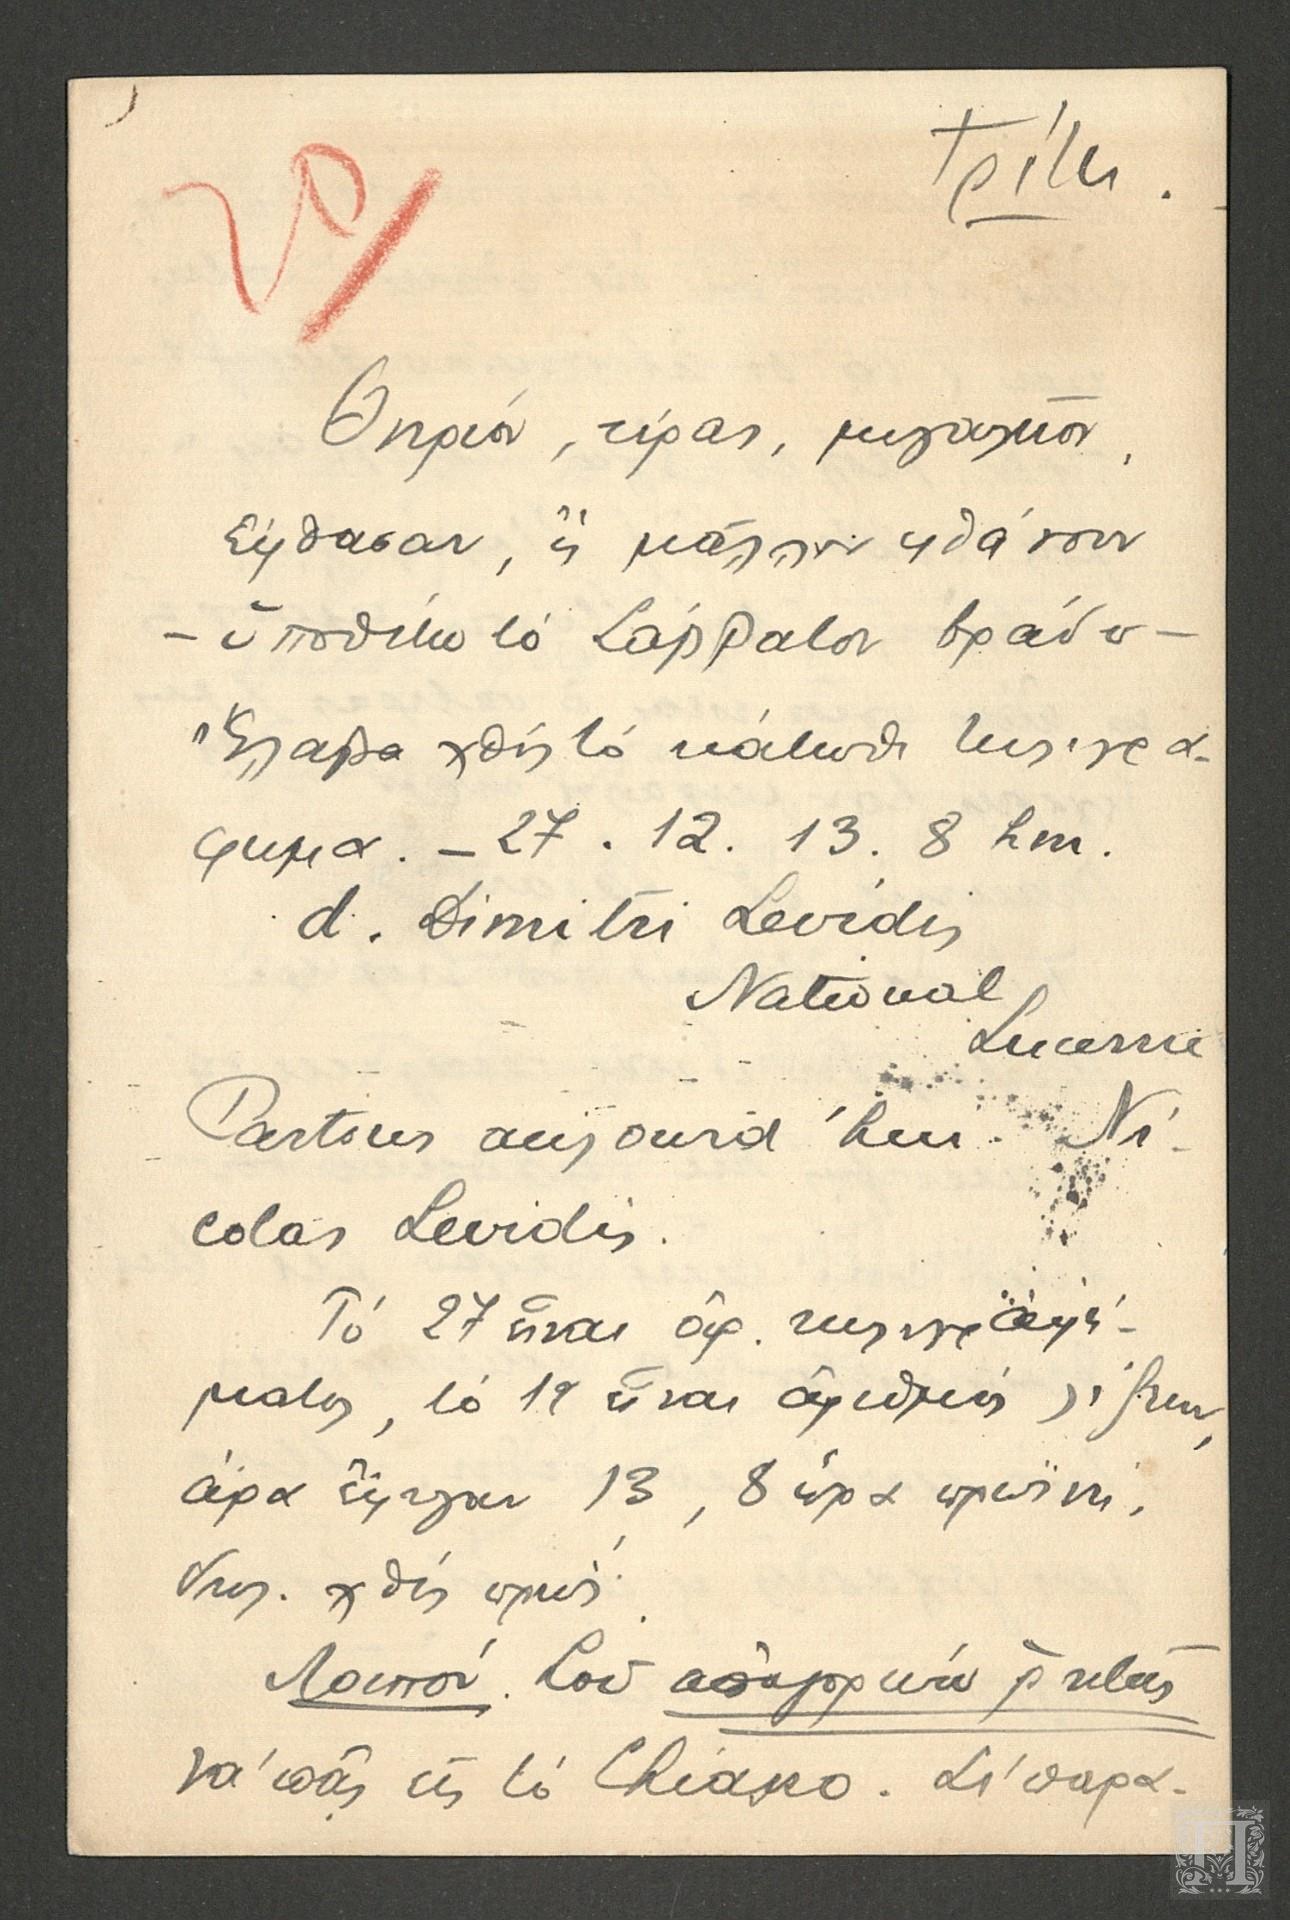 20/
Τρίτη.
Θηρίον, τέρας, μεγαλεῖον,
Ἔφθασαν, ἢ μᾶλλον φθάνουν
– ὑποθέτω τό Σάββατον βράδυ –
Ἔλαβα χθές τό κάτωθι τηλεγρά-
φημα. – 27. 12. 13. 8 hm.
d. Dimitri Levidis
National
Lucerne
Partons aujourd'hui. Ni-
colas Levidis.
Τό 27 εἶναι ἀρ. τηλεγραφή-
ματος, τό 12 εἶναι ἀριθμός λέξεων,
ἄρα ἔφυγαν 13, 8 ὥρα πρωϊνή,
δηλ. χθές πρωΐ.
Λοιπόν. Σοῦ ἀπαγορεύω ρητῶς
νά πᾶς εἰς τό Chiasso. Σέ παρα-